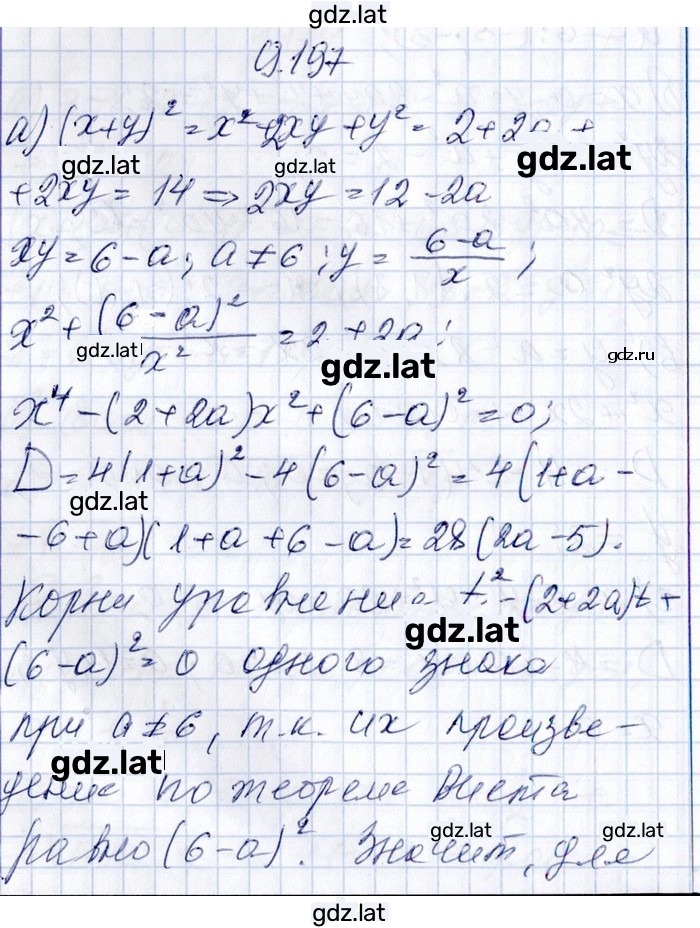 gdz.lat
9.197
а) (x+y)² = x²+2xy+y² = 2+2a +
gdz.lat gdz.lat gdz.lat
+2xy = 14 ⇒ 2xy = 12-2a
xy = 6-a; a≠6; y = (6-a)/x;
x² + (6-a)²/x² = 2+2a;
gdz.lat gdz.lat gdz.ru
x⁴-(2+2a)x²+(6-a)²=0;
D=4(1+a)²-4(6-a)²=4(1+a-
gdz.lat
-6+a)(1+a+6-a)=28(2a-5).
Корни уравнения t²-(2+2a)t+
gdz.lat
(6-a)²=0 одного знака
при a≠6, т.к. их произве-
gdz.lat
дение по теореме Виета
равно (6-a)². Значит, для
gdz.lat gdz.lat
gdz.lat